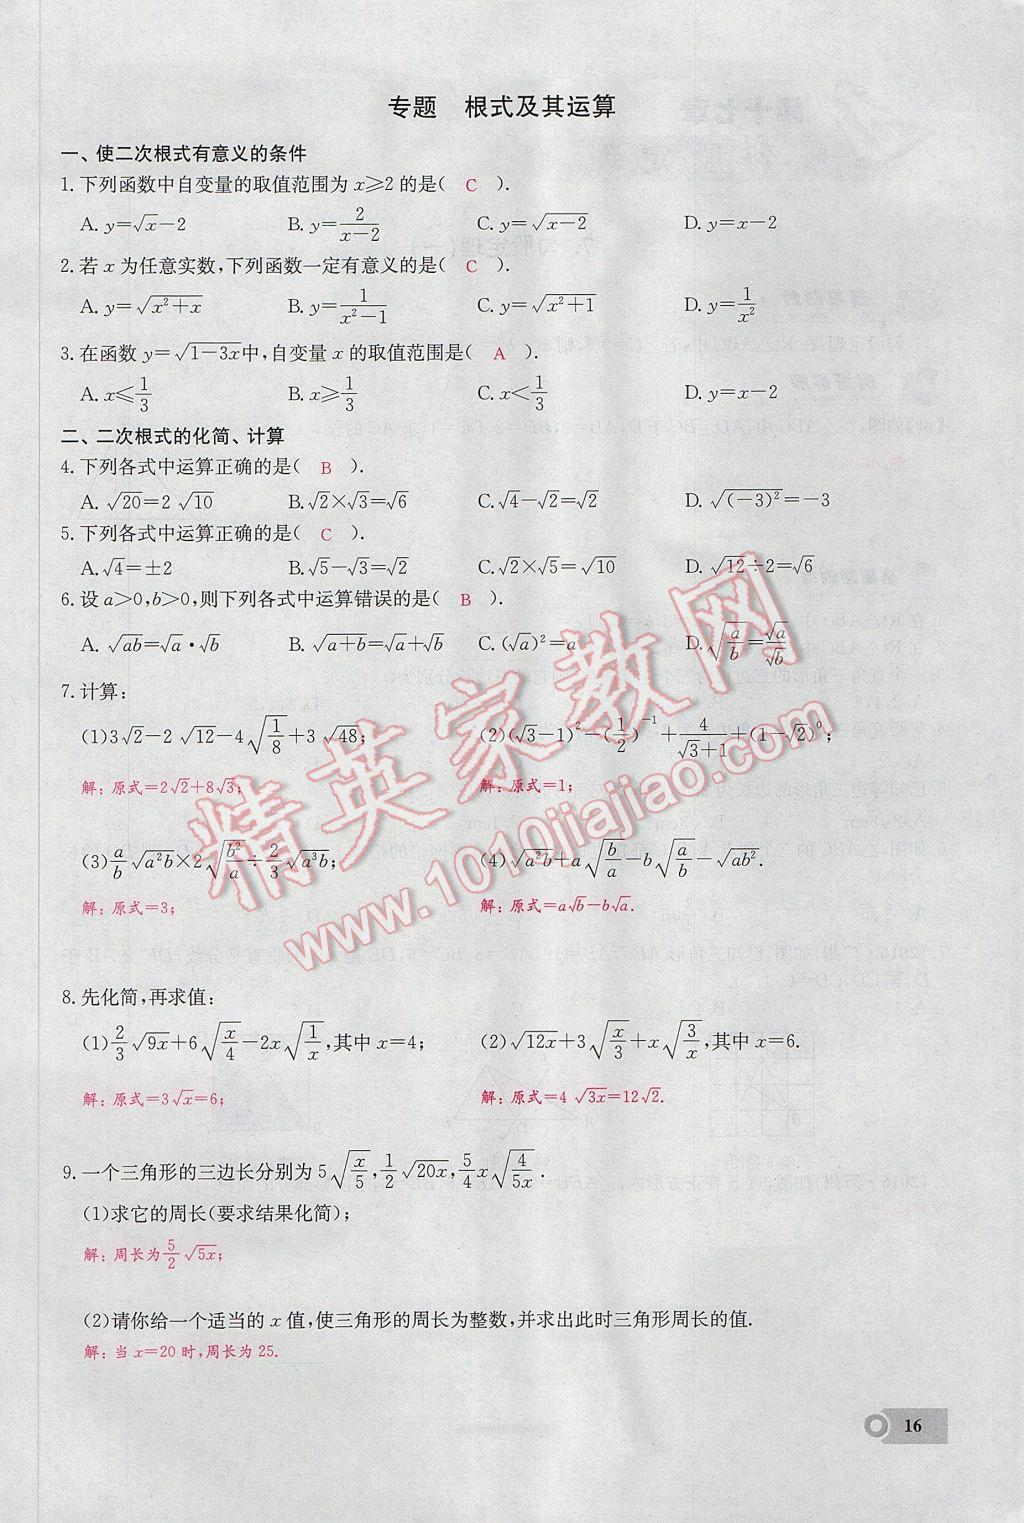 专题 根式及其运算
一、使二次根式有意义的条件
1. 下列函数中自变量的取值范围为 x≥2 的是( C ).
A. y=√x-2 B. y=2/(x-2) C. y=√(x-2) D. y=x-2
2. 若 x 为任意实数,下列函数一定有意义的是( C ).
A. y=√(x²+x) B. y=1/(x²-1) C. y=√(x²+1) D. y=1/x²
3. 在函数 y=√(1-3x)中,自变量 x 的取值范围是( A ).
A. x≤1/3 B. x≥1/3 C. x<1/3 D. y=x-2
二、二次根式的化简、计算
4. 下列各式中运算正确的是( B ).
A. √20=2 √10 B. √2×√3=√6 C. √4-√2=√2 D. √((-3)²)=-3
5. 下列各式中运算正确的是( C ).
A. √4=±2 B. √5-√3=√2 C. √2×√5=√10 D. √12÷2=√6
6. 设 a>0,b>0,则下列各式中运算错误的是( B ).
A. √(ab)=√a·√b B. √(a+b)=√a+√b C. (√a)²=a D. √(a/b)=√a/√b
7. 计算:
(1)3√2-2 √12-4√(1/8)+3 √48; (2)(√3-1)²-(1/2)⁻¹+4/(√3+1)+(1-√2)⁰;
解:原式=2√2+8√3; 解:原式=1;
(3)a/b √(a²b)×2√(b²/a)÷2/3 √(a³b); (4)√(a²b)+a√(b/a)-b√(a/b)-√(ab²).
解:原式=3; 解:原式=a√b-b√a.
8. 先化简,再求值:
(1)2/3 √(9x)+6√(x/4)-2x√(1/x),其中 x=4; (2)√(12x)+3√(x/3)+x√(3/x),其中 x=6.
解:原式=3√x=6; 解:原式=4 √(3x)=12√2.
9. 一个三角形的三边长分别为 5√(x/5),1/2 √(20x),5/4 x√(4/(5x)).
(1)求它的周长(要求结果化简);
解:周长为5/2 √(5x);
(2)请你给一个适当的 x 值,使三角形的周长为整数,并求出此时三角形周长的值.
解:当 x=20 时,周长为 25.
16
精英家教网
www.1010jiajiao.com